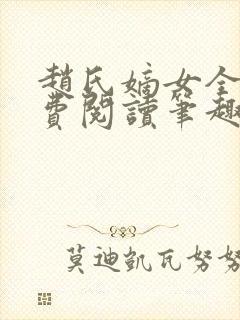 趙氏嫡女全
費閱讀筆趣
莫迪凱瓦努努